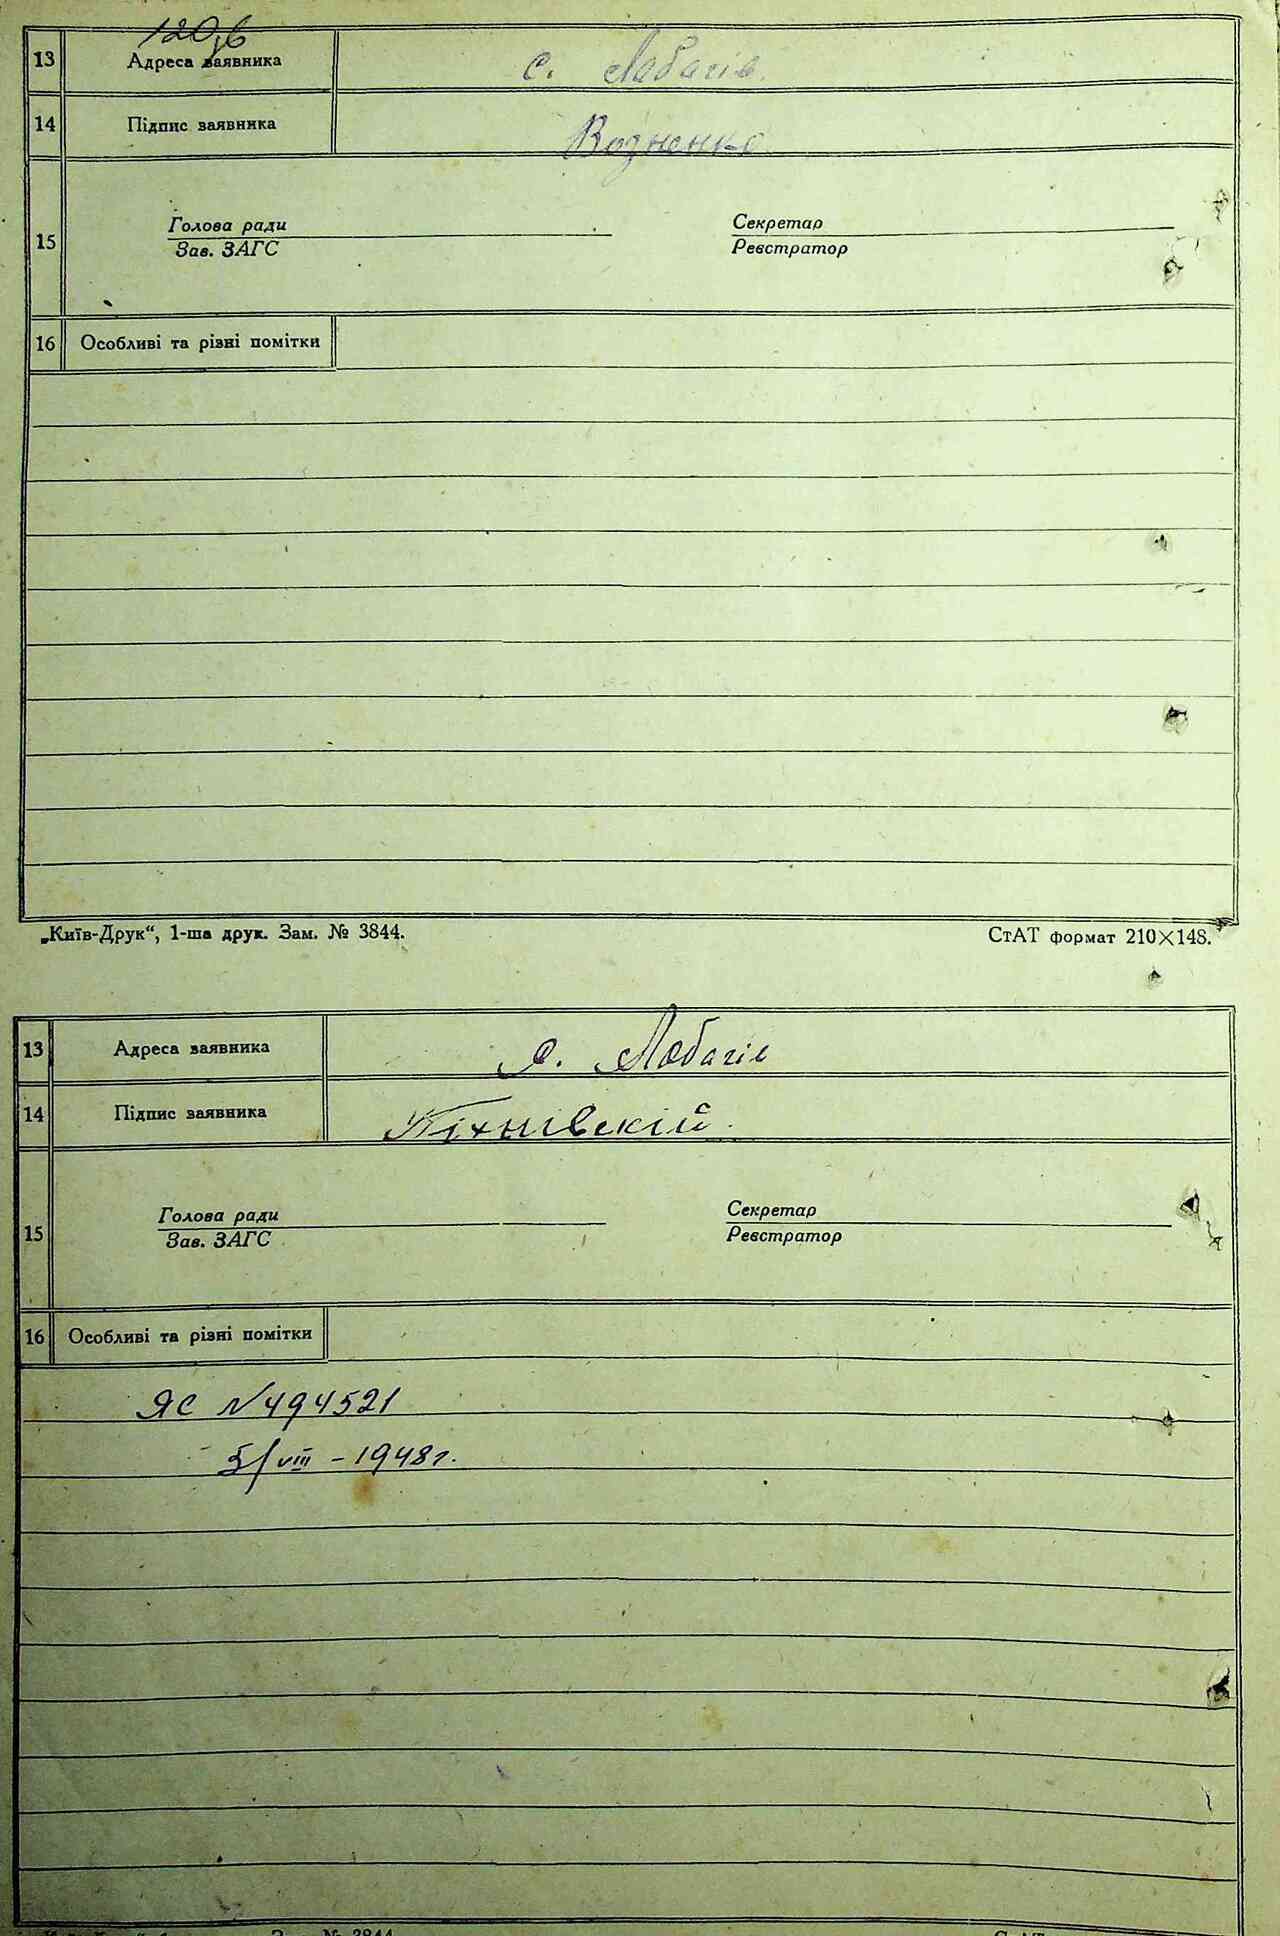 120б
13 Адреса заявника с. Лабачів
14 Підпис заявника Водненко
Голова ради Секретар
15
Зав. ЗАГС Реєстратор
16 Особливі та різні помітки
„Київ-Друк“, 1-ша друк. Зам. № 3844. СтАТ формат 210×148.
13 Адреса заявника с. Лабачів
14 Підпис заявника Тіхнівскій
Голова ради Секретар
15
Зав. ЗАГС Реєстратор
16 Особливі та різні помітки
ЯС №494521
5/VIII – 1948г.